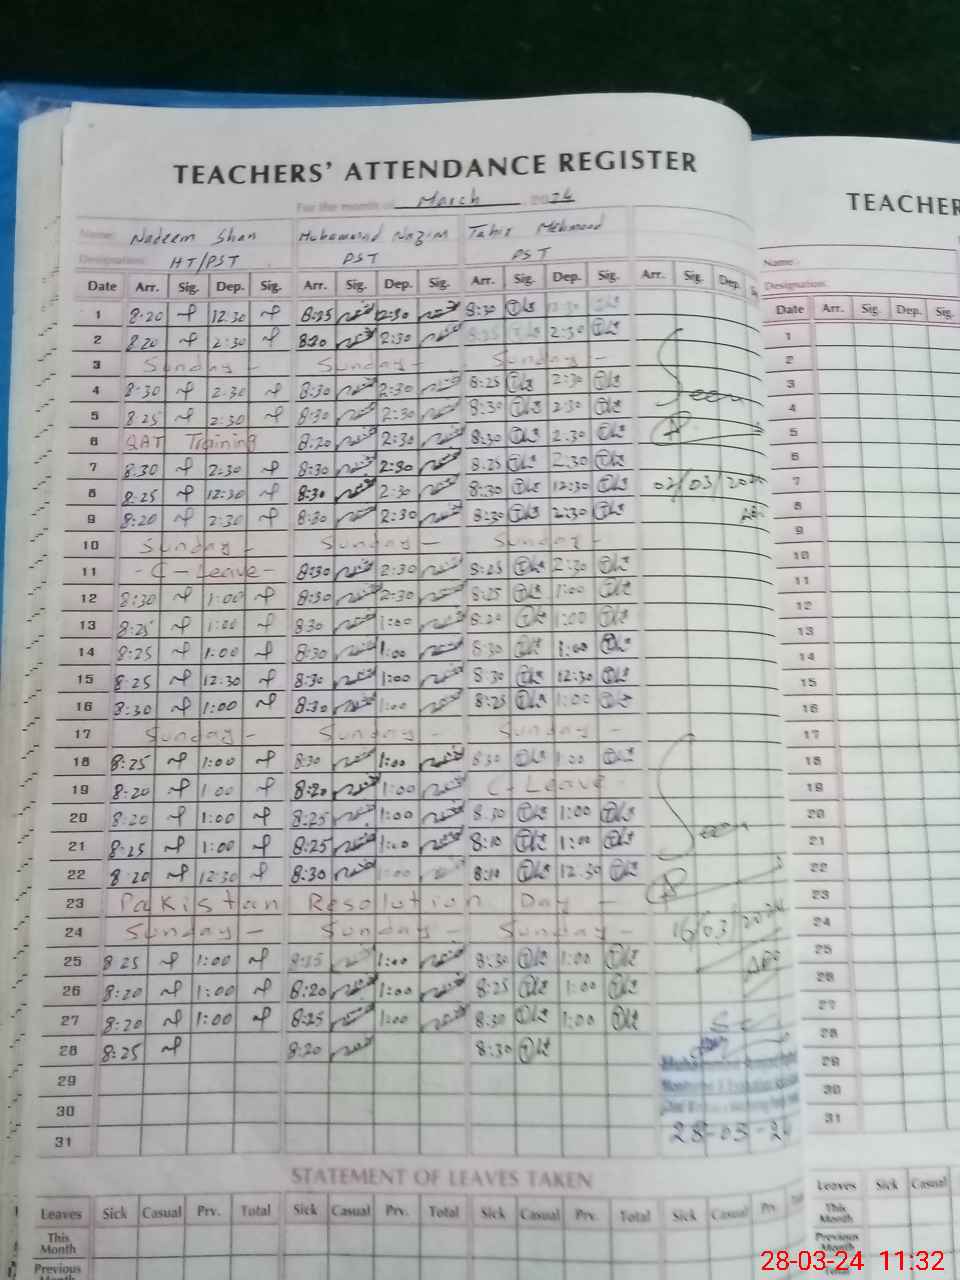 TEACHERS' ATTENDANCE REGISTER
For the month of March 2024
Name: Nadeem Shan Muhammad Nazim Tahir Mehmood
Designation: HT/PST PST PST
Date Arr. Sig. Dep. Sig. Arr. Sig. Dep. Sig. Arr. Sig. Dep. Sig. Arr. Sig. Dep.
1 8:20 12:30 8:25 12:30 8:30 12:30
2 8:20 2:30 8:20 2:30 8:25 2:30
3 Sunday - Sunday - Sunday -
4 8:30 2:30 8:30 2:30 8:25 2:30
5 8:25 2:30 8:30 2:30 8:30 2:30
Seen
6 QAT Training 8:20 2:30 8:30 2:30
7 8:30 2:30 8:30 2:30 8:25 2:30
8 8:25 12:30 8:30 2:30 8:30 12:30
02/03/20
9 8:20 2:30 8:30 2:30 8:30 2:30
10 Sunday - Sunday - Sunday -
11 - C - Leave - 8:30 2:30 8:25 2:30
12 8:30 1:00 8:30 2:30 8:25 1:00
13 8:25 1:00 8:30 1:00 8:20 1:00
14 8:25 1:00 8:30 1:00 8:30 1:00
15 8:25 12:30 8:30 1:00 8:30 12:30
16 8:30 1:00 8:30 1:00 8:25 1:00
17 Sunday - Sunday - Sunday -
18 8:25 1:00 8:30 1:00 8:30 1:00
19 8:20 1:00 8:20 1:00 C - Leave
20 8:20 1:00 8:25 1:00 8:30 1:00
21 8:25 1:00 8:25 1:00 8:10 1:00
Seen
22 8:20 12:30 8:30 1:00 8:10 12:30
23 Pakistan Resolution Day -
24 Sunday - Sunday - Sunday -
16/03/2024
25 8:25 1:00 8:25 1:00 8:30 1:00
26 8:20 1:00 8:20 1:00 8:25 1:00
27 8:20 1:00 8:25 1:00 8:30 1:00
28 8:25 8:20 8:30
29
30
31
28-03-24
STATEMENT OF LEAVES TAKEN
Leaves Sick Casual Prv. Total Sick Casual Prv. Total Sick Casual Prv. Total Sick Casual Prv.
This Month
Previous
TEACHER
Name:
Designation:
Date Arr. Sig. Dep. Sig.
1
2
3
4
5
6
7
8
9
10
11
12
13
14
15
16
17
18
19
20
21
22
23
24
25
26
27
28
29
30
31
Leaves Sick Casual
This Month
Previous Month
28-03-24 11:32